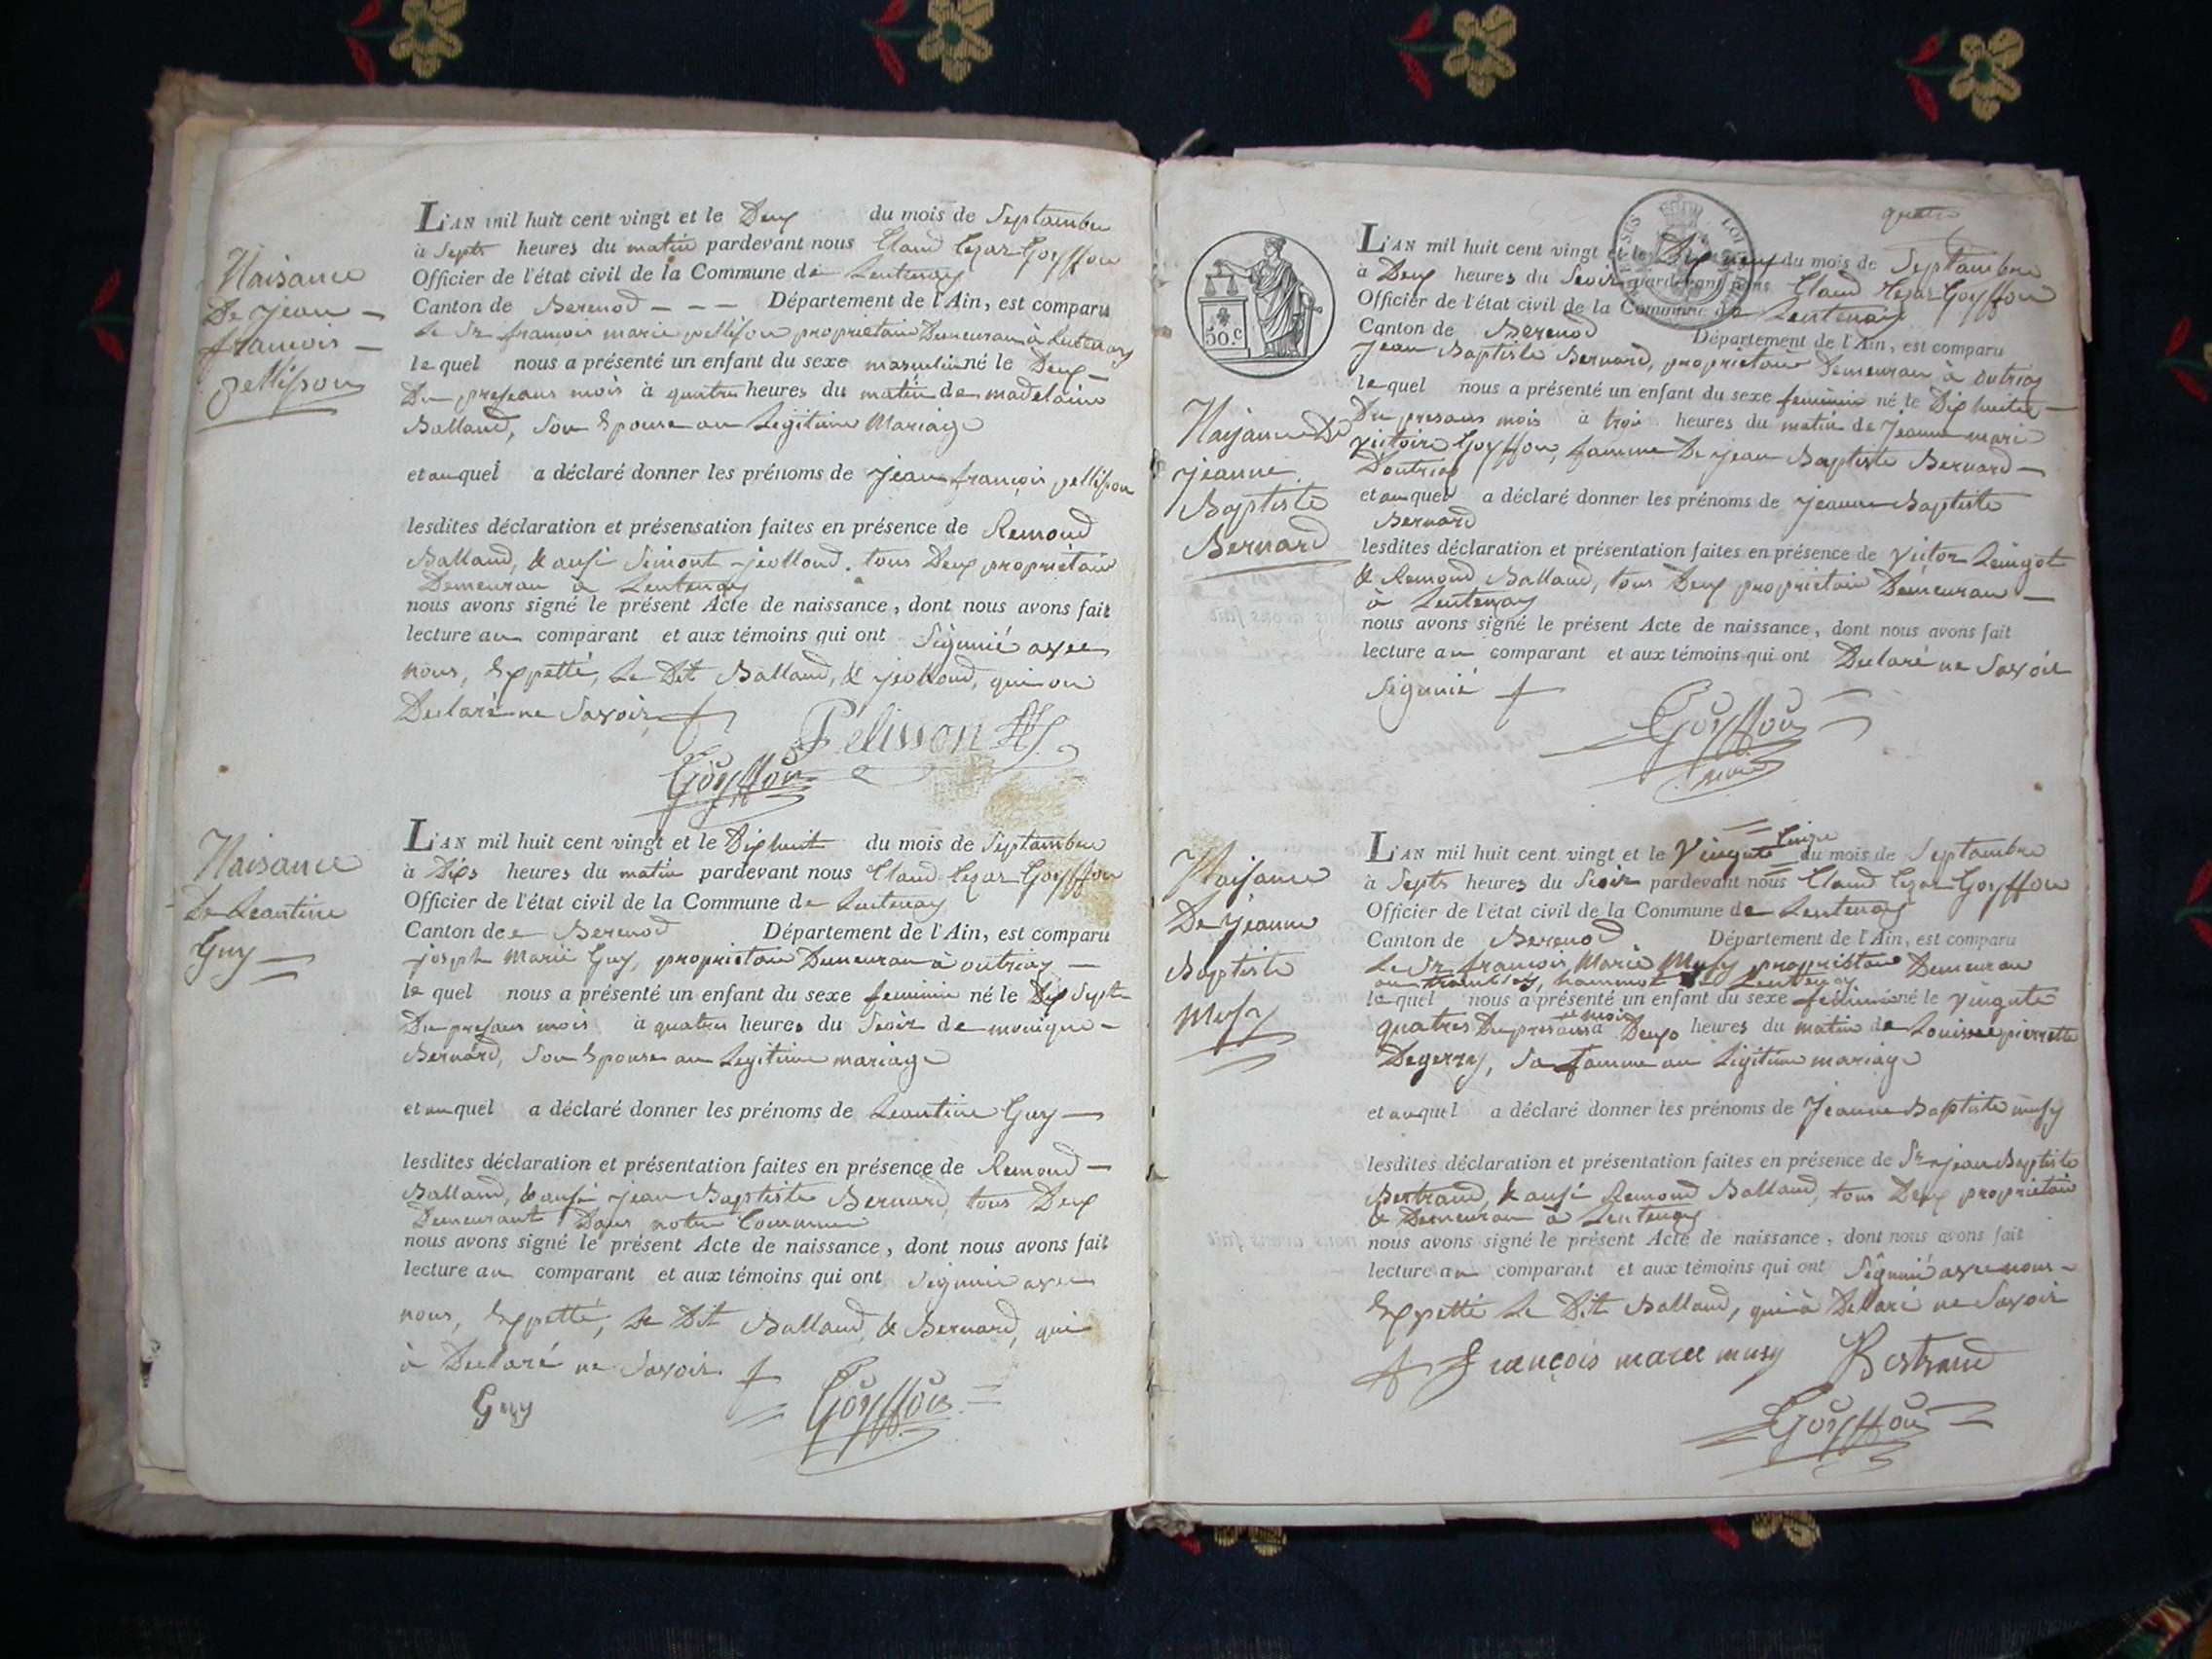 Naisance
De Jean
françois
pellisson
L'AN mil huit cent vingt et le Deux du mois de Septambre
à Septs heures du matin pardevant nous Claud Cezar Goyffon
Officier de l'état civil de la Commune de Lentenay
Canton de Berenod Département de l'Ain, est comparu
Le Sr. françois marie pellison propriétaire Demeuran à Lentenay
le quel nous a présenté un enfant du sexe masculin né le Deux
Du presans mois à quatre heures du matin de madelaine
Balland, Son Epouse an Legitime Mariage
et auquel a déclaré donner les prénoms de Jean françois pellison
lesdites déclaration et présensation faites en présence de Remond
Balland, & ausi Simont jeollond, tous Deux proprietair
Demeuran à Lentenay
nous avons signé le présent Acte de naissance, dont nous avons fait
lecture au comparant et aux témoins qui ont Signnié avec
nous, Expetté, Le Dit Balland, & jeollond, qui on
Declaré ne Savoir
Pelisson
Goyffon
Naisance
De Leantine
Guy
L'AN mil huit cent vingt et le Dix huit du mois de Septambre
à Dixs heures du matin pardevant nous Claud Cezar Goyffon
Officier de l'état civil de la Commune de Lentenay
Canton de Berenod Département de l'Ain, est comparu
joseph Marie Guy, proprietair Demeuran à outriay
le quel nous a présenté un enfant du sexe feminin né le Dix Sept
Du presans mois à quatres heures du Seoir de monique
Bernard, Son Epouse an Legitime mariage
et auquel a déclaré donner les prénoms de Leantine Guy
lesdites déclaration et présentation faites en présence de Remond
Balland, & ausi jean Baptiste Bernard, tous Deux
Demeurant Dans notre Commune
nous avons signé le présent Acte de naissance, dont nous avons fait
lecture au comparant et aux témoins qui ont Signnié avec
nous, Expetté, Le Dit Balland, & Bernard, qui
à Declaré ne Savoir
Guy
Goyffon
quatre
50.c
Naisance De
jeanne
Baptiste
Bernard
L'AN mil huit cent vingt et le Dix neuf du mois de Septambre
à Deux heures du Seoir pardevant nous Claud Cezar Goyffon
Officier de l'état civil de la Commune de Lentenay
Canton de Berenod Département de l'Ain, est comparu
jean Baptiste Bernard, proprietair Demeuran à outriay
le quel nous a présenté un enfant du sexe feminin né le Dix huite
Du presans mois à trois heures du matin de jeanne marie
victoire Goyffon, famme De jean Baptiste Bernard
Doutriay
et auquel a déclaré donner les prénoms de jeanne Baptiste
Bernard
lesdites déclaration et présentation faites en présence de victor Lengot
& Remond Balland, tous Deux proprietair Demeuran
à Lentenay
nous avons signé le présent Acte de naissance, dont nous avons fait
lecture au comparant et aux témoins qui ont Declaré ne Savoir
Signnié
Goyffon
maire
Naisance
De jeanne
Baptiste
Musy
L'AN mil huit cent vingt et le Vingute Cinqe du mois de Septambre
à Septs heures du Seoir pardevant nous Claud Cezar Goyffon
Officier de l'état civil de la Commune de Lentenay
Canton de Berenod Département de l'Ain, est comparu
Le Sr. françois Marie Musy proprietair Demeuran
le quel nous a présenté un enfant du sexe feminin né le vingute
quatres Du presans mois à Deux heures du matin de Louisse pierrette
Degerry, Sa famme an Ligitime mariage
et auquel a déclaré donner les prénoms de Jeanne Baptiste musy
lesdites déclaration et présentation faites en présence de Sr. jean Baptiste
Bertrand, & ausi Remond Balland, tous Deux proprietair
& Demeuran à Lentenay
nous avons signé le présent Acte de naissance, dont nous avons fait
lecture au comparant et aux témoins qui ont Signnié avec nous
Expetté Le Dit Balland, qui à Declaré ne Savoir
françois marie musy Bertrand
Goyffon